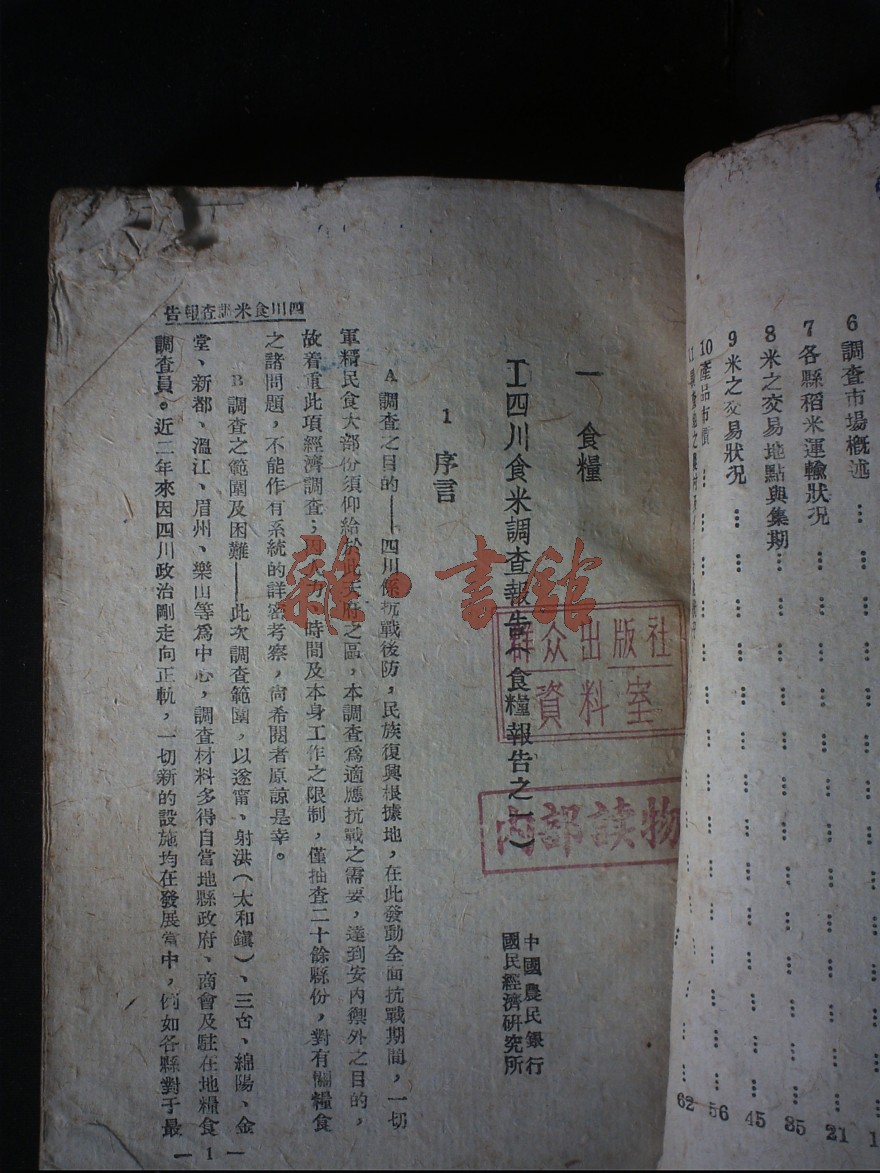 6 調查市場概述 … … … 1
7 各縣稻米運輸狀况 … … … 21
8 米之交易地點與集期 … … … 35
9 米之交易狀况 … … … 45
10 產品市價 … … … 56
62
一 食糧
工四川食米調查報告 食糧報告之一)
中國農民銀行
國民經濟研究所
1 序言
A 調查之目的——四川係抗戰後防,民族復興根據地,在此發動全面抗戰期間,一切
軍糈民食大部份須仰給於此天府之區,本調查爲適應抗戰之需要,達到安內禦外之目的,
故着重此項經濟調查;因人力、時間及本身工作之限制,僅抽查二十餘縣份,對有關糧食
之諸問題,不能作有系統的詳密考察,尙希閱者原諒是幸。
B 調查之範圍及困難——此次調查範圍,以遂甯、射洪(太和鎭)、三台、綿陽、金
堂、新都、溫江、眉州、樂山等爲中心,調查材料多得自當地縣政府、商會及駐在地糧食
調查員。近二年來因四川政治剛走向正軌,一切新的設施均在發展當中,例如各縣對于最
四川食米調查報告
一1一
群众出版社
資料室
内部读物
雜·書館